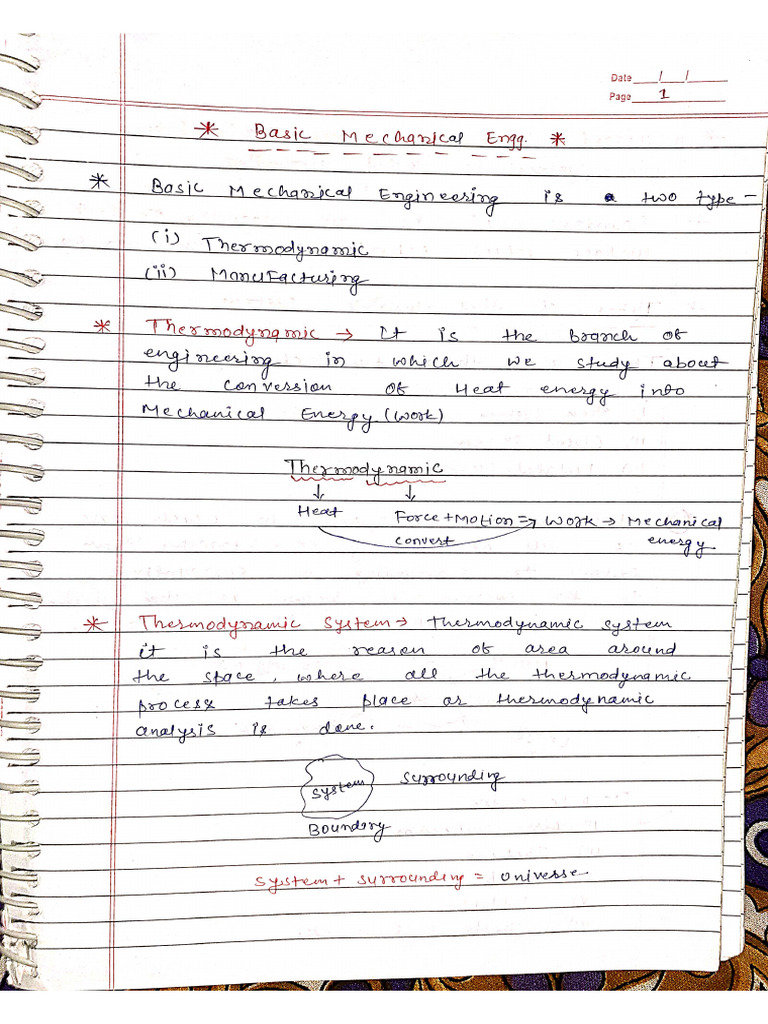 Date __/__/____
Page 1
* Basic Mechanical Engg. *
* Basic Mechanical Engineering is a two type -
(i) Thermodynamic
(ii) Manufacturing
* Thermodynamic → It is the branch of
engineering in which we study about
the conversion of Heat energy into
Mechanical Energy (work)
Thermodynamic
↓ ↓
Heat Force + Motion => work → Mechanical
convert energy
* Thermodynamic System → thermodynamic system
it is the reason of area around
the space, where all the thermodynamic
process takes place or thermodynamic
analysis is done.
System Surrounding
Boundry
System + Surrounding = Universe